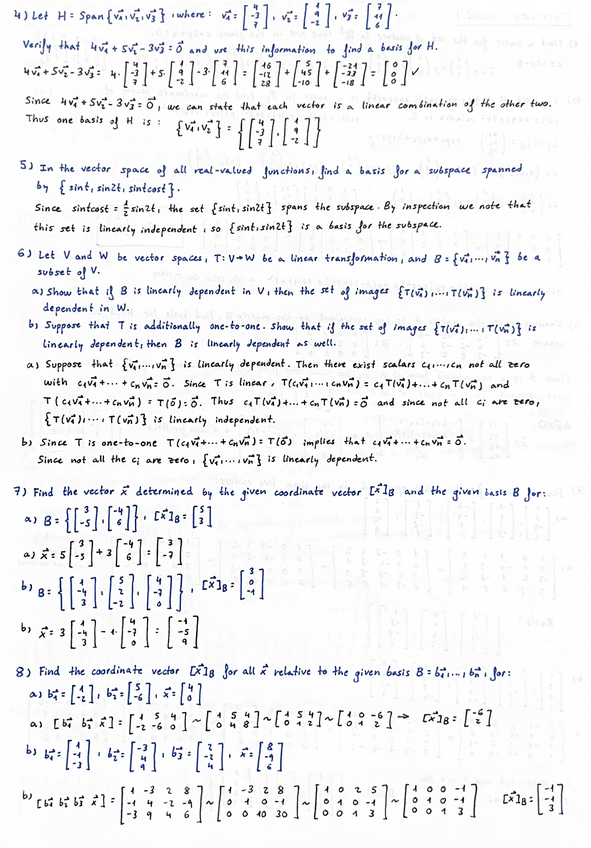 4) Let H = Span{v₁, v₂, v₃}, where: v₁ = [4 -3 7], v₂ = [1 9 -2], v₃ = [7 11 6].
Verify that 4v₁ + 5v₂ - 3v₃ = 0 and use this information to find a basis for H.
4v₁ + 5v₂ - 3v₃ = 4·[4 -3 7] + 5·[1 9 -2] - 3·[7 11 6] = [16 -12 28] + [5 45 -10] + [-21 -33 -18] = [0 0 0] ✓
Since 4v₁ + 5v₂ - 3v₃ = 0, we can state that each vector is a linear combination of the other two.
Thus one basis of H is: {v₁, v₂} = {[4 -3 7], [1 9 -2]}
5) In the vector space of all real-valued functions, find a basis for a subspace spanned
by {sint, sin2t, sintcost}.
Since sintcost = ½ sin2t, the set {sint, sin2t} spans the subspace. By inspection we note that
this set is linearly independent, so {sint, sin2t} is a basis for the subspace.
6) Let V and W be vector spaces, T: V→W be a linear transformation, and B = {v₁, ..., vₙ} be a
subset of V.
a) Show that if B is linearly dependent in V, then the set of images {T(v₁), ..., T(vₙ)} is linearly
dependent in W.
b) Suppose that T is additionally one-to-one. Show that if the set of images {T(v₁), ..., T(vₙ)} is
linearly dependent, then B is linearly dependent as well.
a) Suppose that {v₁, ..., vₙ} is linearly dependent. Then there exist scalars c₁, ..., cₙ not all zero
with c₁v₁ + ... + cₙvₙ = 0. Since T is linear, T(c₁v₁, ..., cₙvₙ) = c₁T(v₁) + ... + cₙT(vₙ) and
T(c₁v₁ + ... + cₙvₙ) = T(0) = 0. Thus c₁T(v₁) + ... + cₙT(vₙ) = 0 and since not all cᵢ are zero,
{T(v₁), ..., T(vₙ)} is linearly independent.
b) Since T is one-to-one T(c₁v₁ + ... + cₙvₙ) = T(0) implies that c₁v₁ + ... + cₙvₙ = 0.
Since not all the cᵢ are zero, {v₁, ..., vₙ} is linearly dependent.
7) Find the vector x determined by the given coordinate vector [x]B and the given basis B for:
a) B = {[3 -5], [-4 6]}, [x]B = [5 3]
a) x = 5[3 -5] + 3[-4 6] = [3 -7]
b) B = {[1 -4 3], [5 2 -2], [4 -7 0]}, [x]B = [3 0 -1]
b) x = 3[1 -4 3] - 1·[4 -7 0] = [-1 -5 9]
8) Find the coordinate vector [x]B for all x relative to the given basis B = b₁, ..., bₙ, for:
a) b₁ = [1 -2], b₂ = [5 -6], x = [4 0]
a) [b₁ b₂ x] = [1 5 4; -2 -6 0] ~ [1 5 4; 0 4 8] ~ [1 5 4; 0 1 2] ~ [1 0 -6; 0 1 2] → [x]B = [-6 2]
b) b₁ = [1 -1 -3], b₂ = [-3 4 9], b₃ = [2 -2 4], x = [8 -9 6]
b) [b₁ b₂ b₃ x] = [1 -3 2 8; -1 4 -2 -9; -3 9 4 6] ~ [1 -3 2 8; 0 1 0 -1; 0 0 10 30] ~ [1 0 2 5; 0 1 0 -1; 0 0 1 3] ~ [1 0 0 -1; 0 1 0 -1; 0 0 1 3] [x]B = [-1 -1 3]